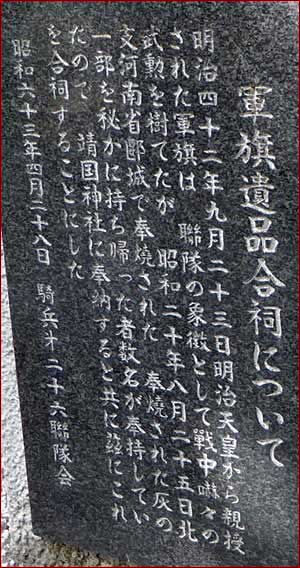 軍旗遺品合祠について
明治四十二年九月二十三日明治天皇から親授
された軍旗は 聯隊の象徴として戰中嚇々の
武勲を樹てたが 昭和二十年八月二十五日北
支河南省郾城で奉焼された 奉焼された灰の
一部を秘かに持ち帰った者数名が奉持してい
たので 靖国神社に奉納すると共に茲にこれ
を合祠することにした
昭和六十三年四月二十八日 騎兵才二十六聯隊会